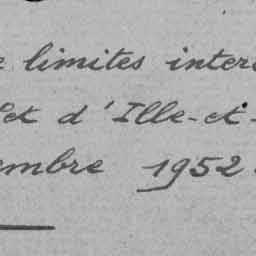 limites inter
et d'Ille-et-
embre 1952